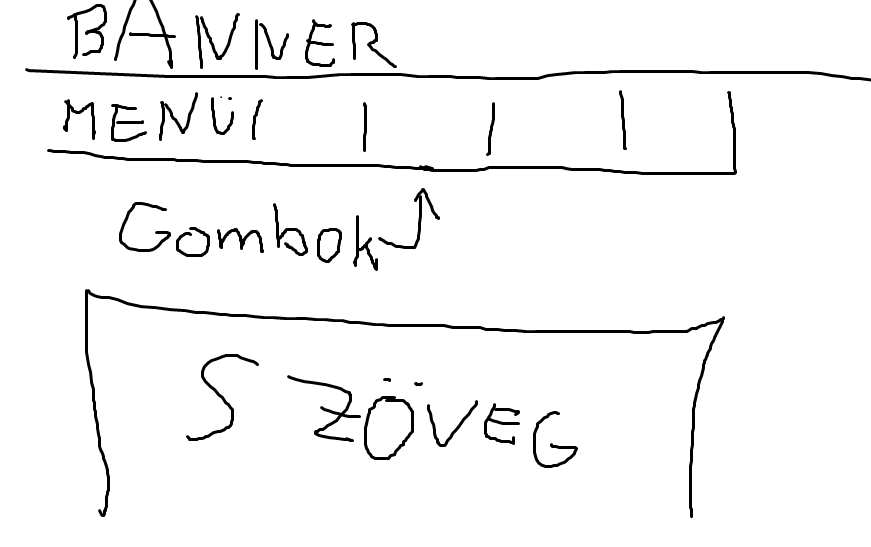 BANNER
MENÜ
Gombok
SZÖVEG